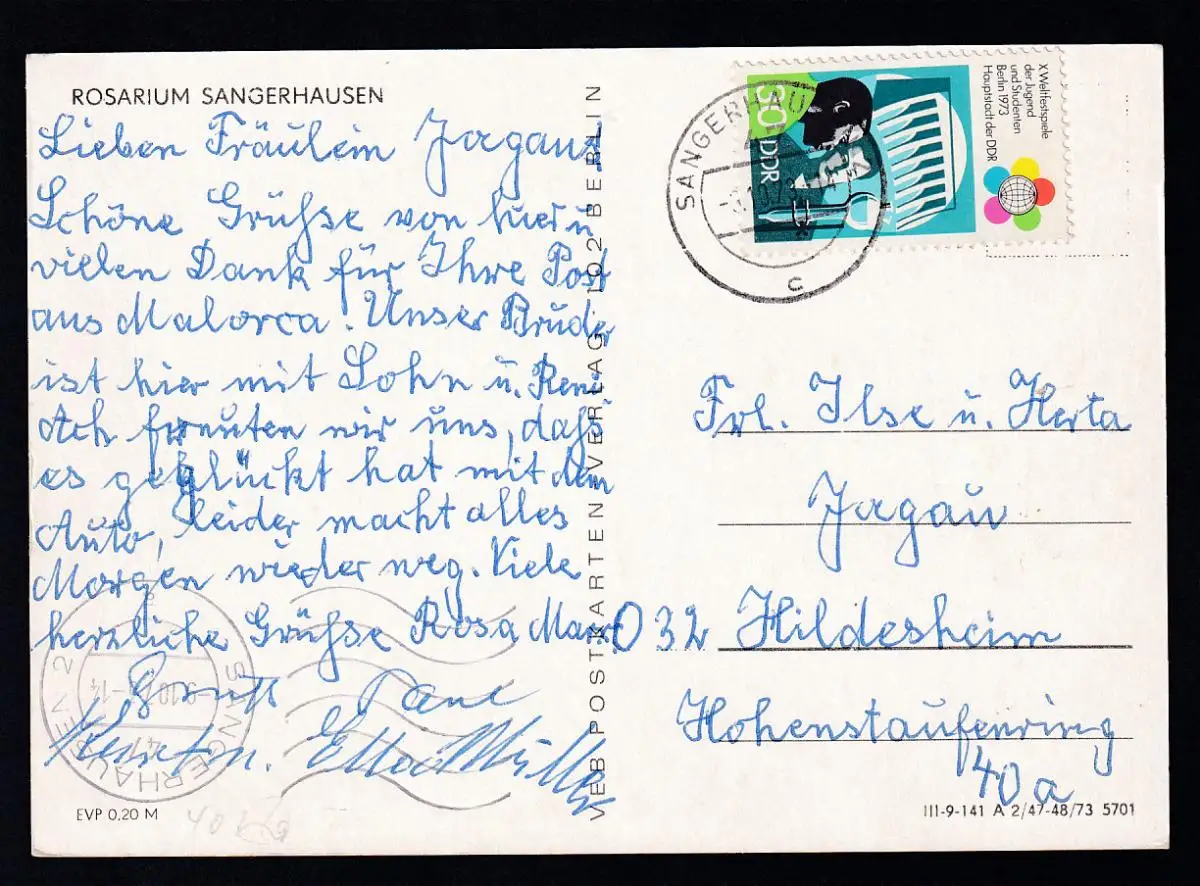 ROSARIUM SANGERHAUSEN
Lieben Fräulein Jagau
Schöne Grühse von hier u
vielen Dank für Ihre Post
aus Malorca. Unser Bruder
ist hier mit Sohn u. Rena
Ach freuten wir uns, dahs
es geklückt hat mit dem
Auto, leider macht alles
Morgen wieder weg. Viele
herzliche Grühse Rosa Mar
Gruß Paul
Ella Müller
EVP 0,20 M
40
VEB POSTKARTENVERLAG 102 BERLIN
SANGERHAUSEN 2
SANGERHAU
c
30 DDR
X. Weltfestspiele
der Jugend
und Studenten
Berlin 1973
Hauptstadt der DDR
Frl. Ilse u. Herta
Jagau
032 Hildesheim
Hohenstaufenring
40a
III-9-141 A 2/47-48/73 5701